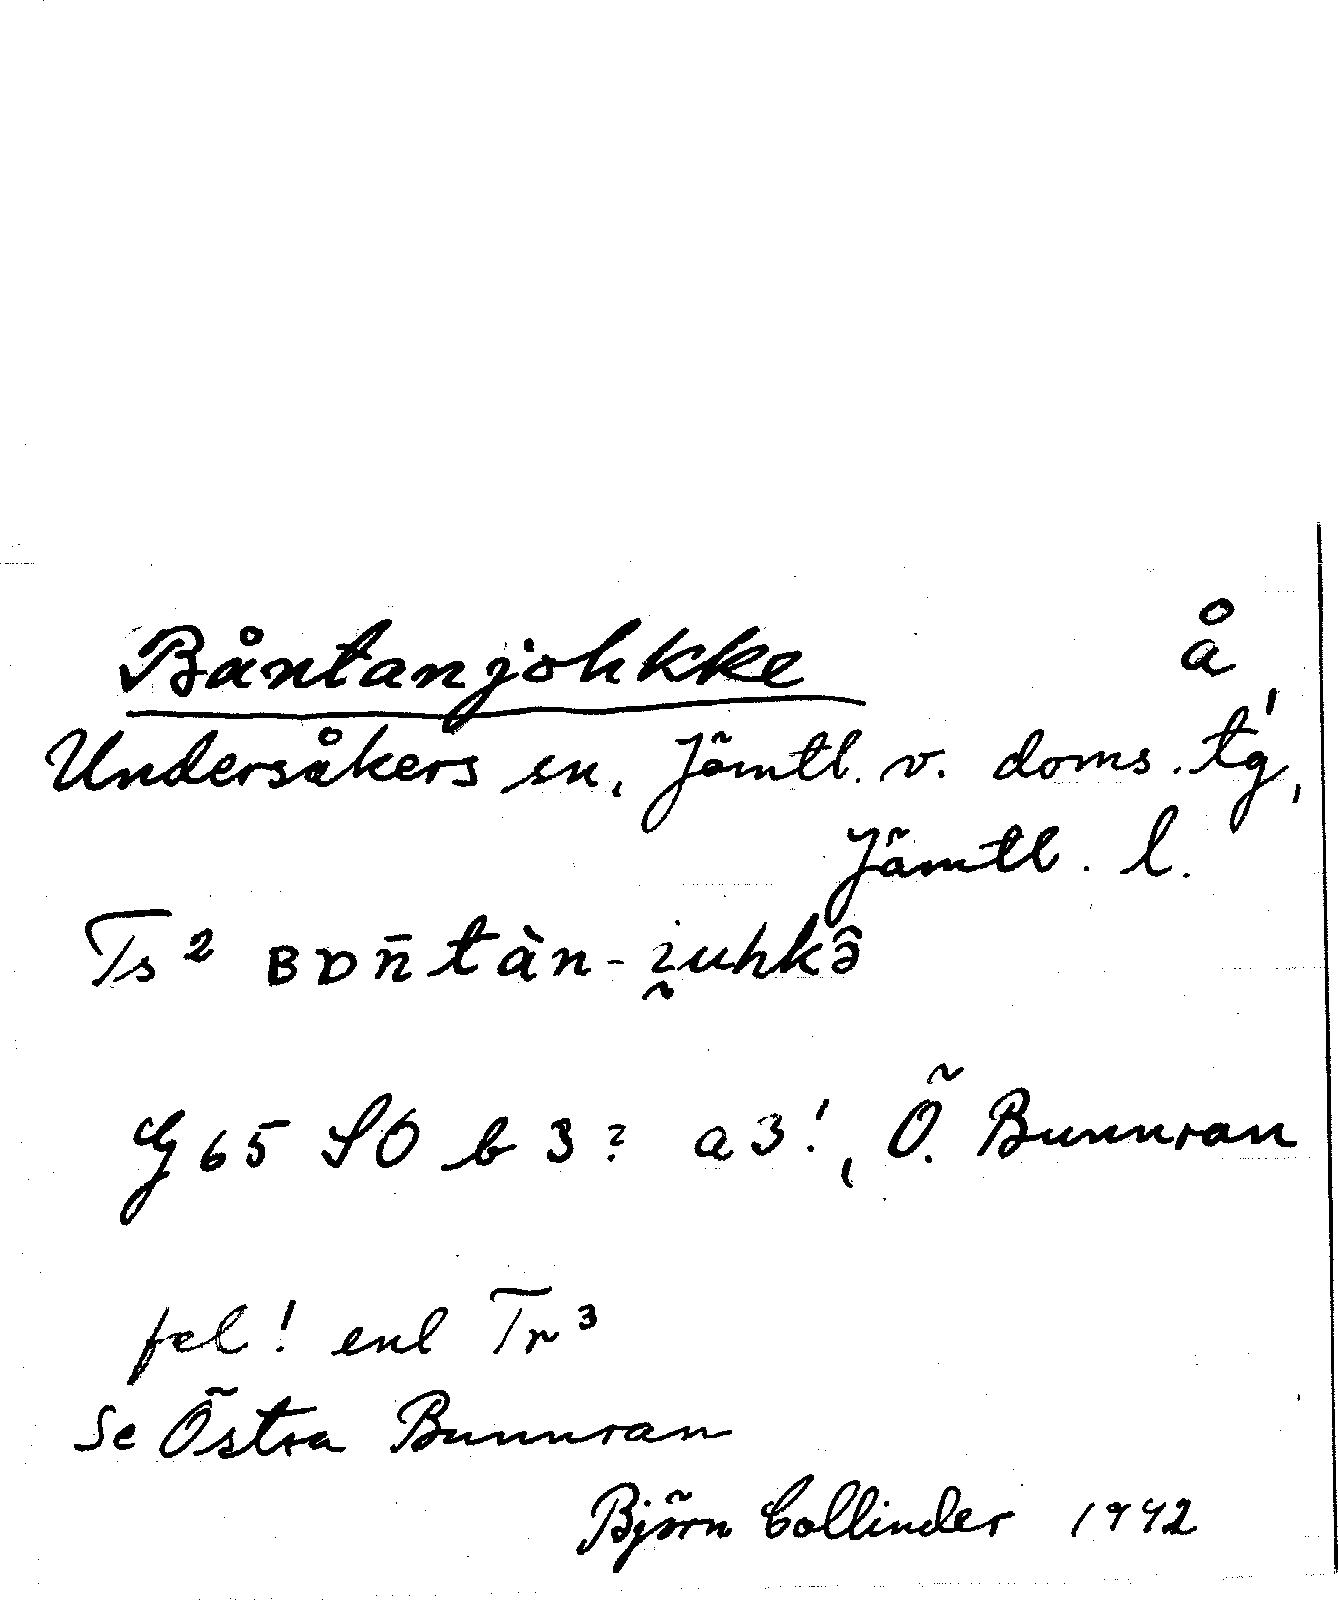 Båntanjohkke å
Undersåkers sn, Jämtl. v. doms. t'g,
Jämtl. l.
Ts² BDn̄tàn-i̯uhkə̂
G65 SO b3? a3!, Ö. Bunnran
fel! enl Tr³
Se Östra Bunnran
Björn Collinder 1942